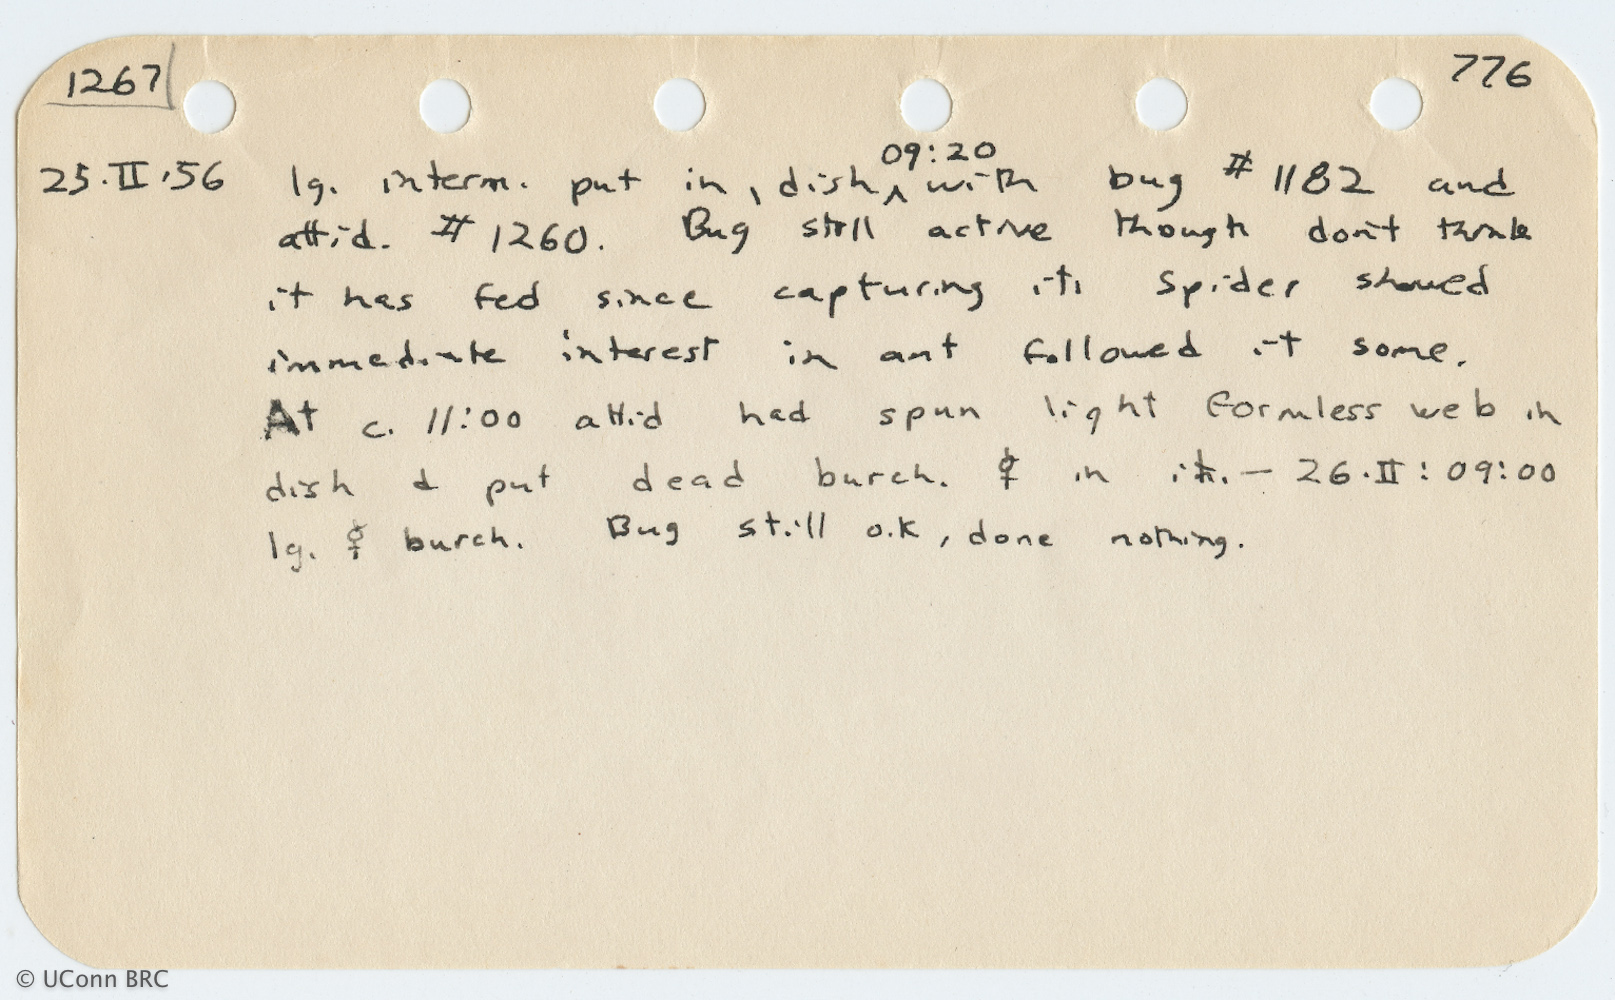 1267 776
09:20
25.II.56 lg. interm. put in, dish ^ with bug # 1182 and
attid. # 1260. Bug still active though don't think
it has fed since capturing it. Spider showed
immediate interest in ant followed it some.
At c. 11:00 attid had spun light formless web in
dish & put dead burch. ☿ in it. — 26.II: 09:00
lg. ☿ burch. Bug still o.k, done nothing.
© UConn BRC